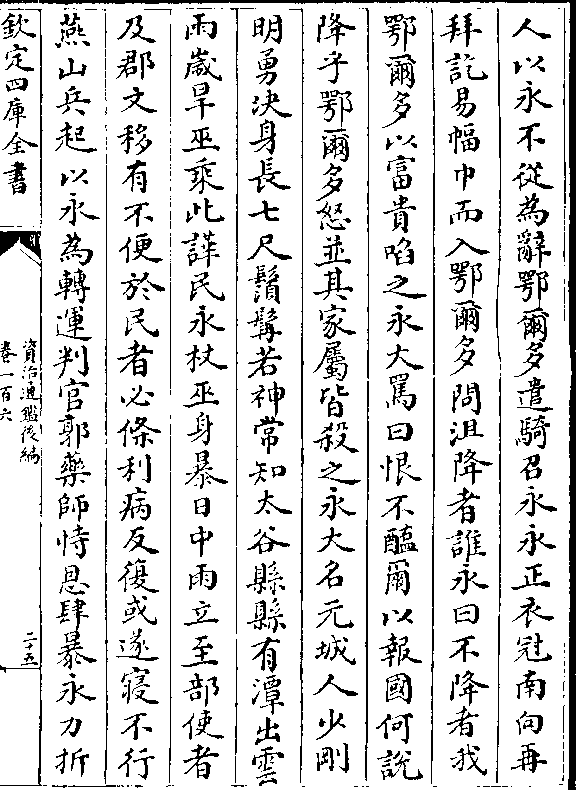 人以永不從為辭鄂爾多遣騎召永永正衣冠南向再
拜訖易幅巾而入鄂爾多問沮降者誰永曰不降者我
鄂爾多以富貴啗之永大罵曰恨不醢爾以報國何說
降乎鄂爾多怒並其家屬皆殺之永大名元城人少剛
明勇決身長七尺鬚髯若神常知太谷縣縣有潭出雲
雨歲旱巫乘此譁民永杖巫身暴日中雨立至部使者
及郡文移有不便於民者必條利病反復或遂寢不行
燕山兵起以永為轉運判官郭藥師恃恩肆暴永力折
欽定四庫全書
資治通鑑後編
卷一百六
二十五